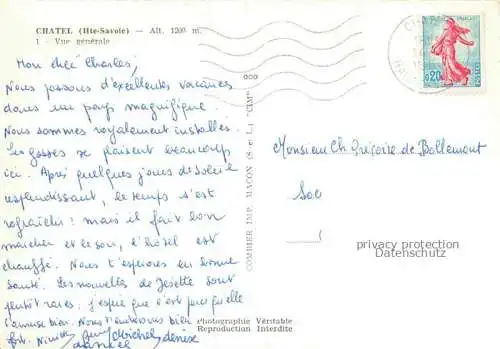 CHATEL (Hte-Savoie) — Alt. 1200 m.
1 - Vue générale
Mon cher Charles,
Nous passons d'excellentes vacances
dans un pays magnifique.
Nous sommes royalement installés.
Les gosses se plaisent beaucoup
ici. Après quelques jours de soleil
resplendissant, le temps s'est
rafraîchi : mais il fait bon
marcher et le soir, l'hôtel est
chauffé. Nous t'espérons en bonne
santé. Les nouvelles de Josette sont
plutôt rares. j'espère que c'est parce qu'elle
s'amuse bien. Nous
Michel Denise
COMBIER IMP. MACON (S.-et-L.) "CIM"
0,20
Monsieur Ch Grégoire de Bollemont
Photographie Véritable
Reproduction Interdite
privacy protection
Datenschutz